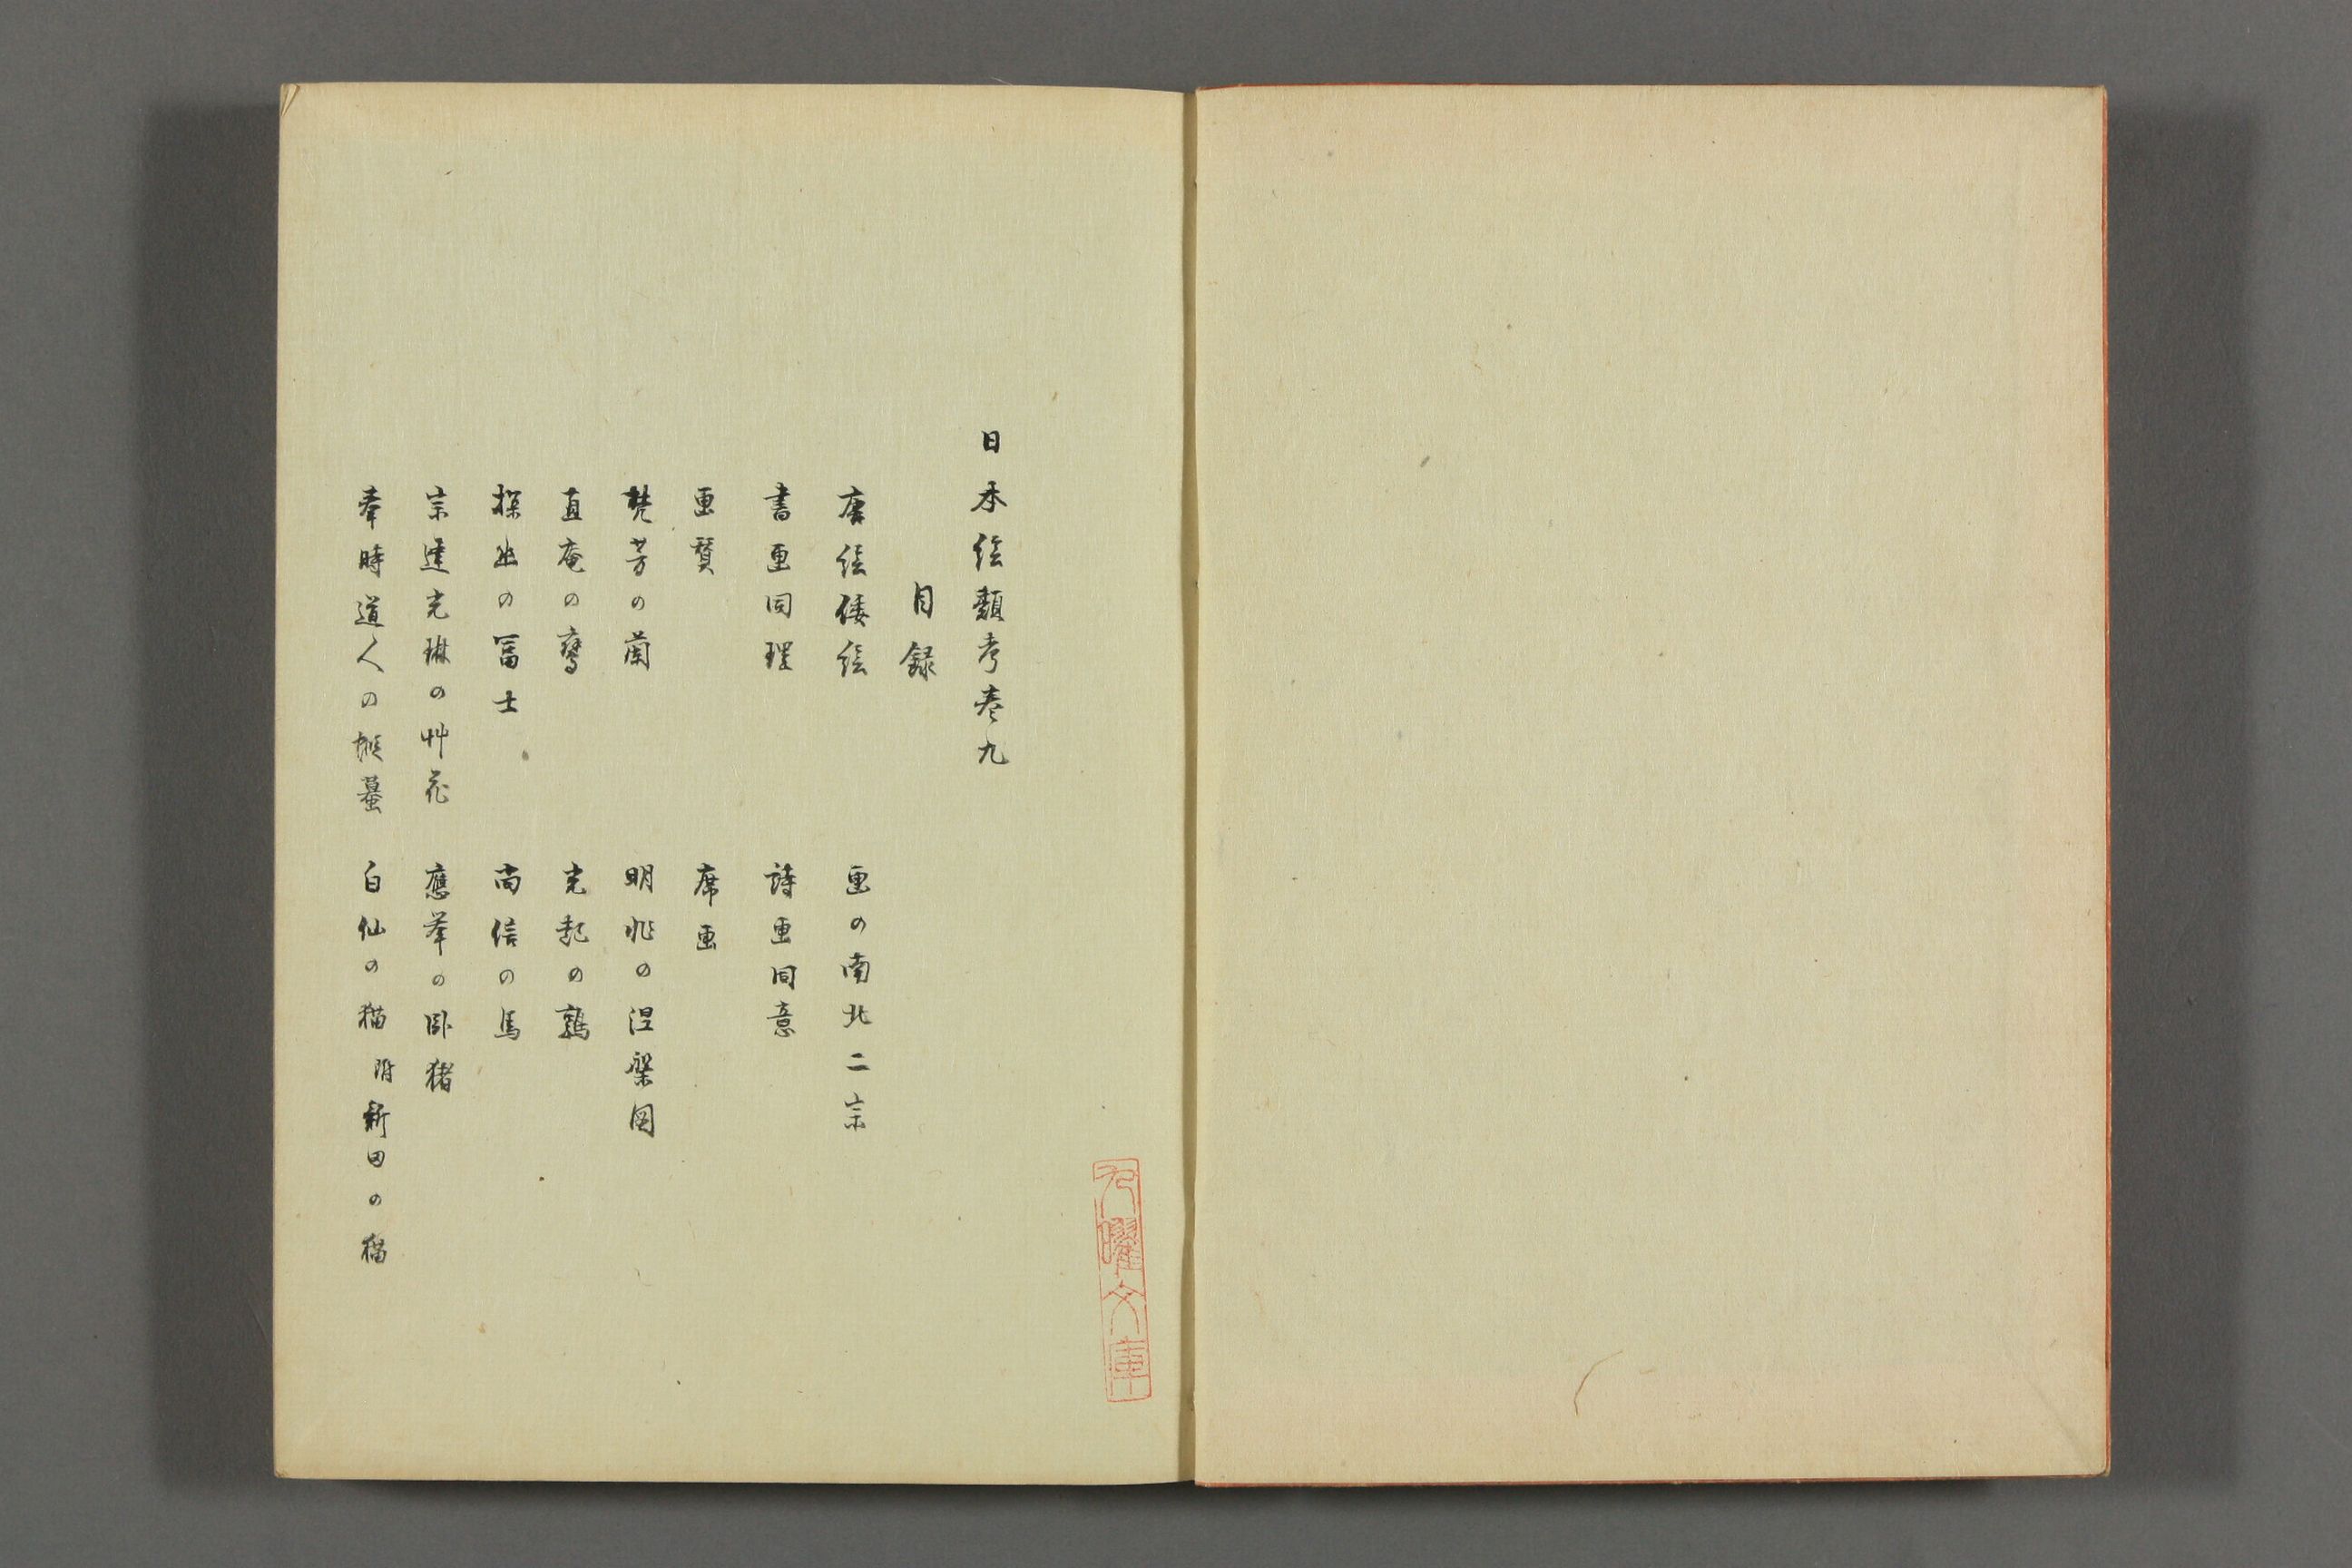 日本絵類考巻九
目録
唐絵倭絵　画の南北二宗
書画同理　詩画同意
画賛　席画
梵芳の蘭　明兆の涅槃図
直庵の鷹　光起の鶉
探幽の冨士　尚信の馬
宗達光琳の艸花　應挙の臥猪
奉時道人の蝦蟇　白仙の猫 附新田の猫
九曜文庫